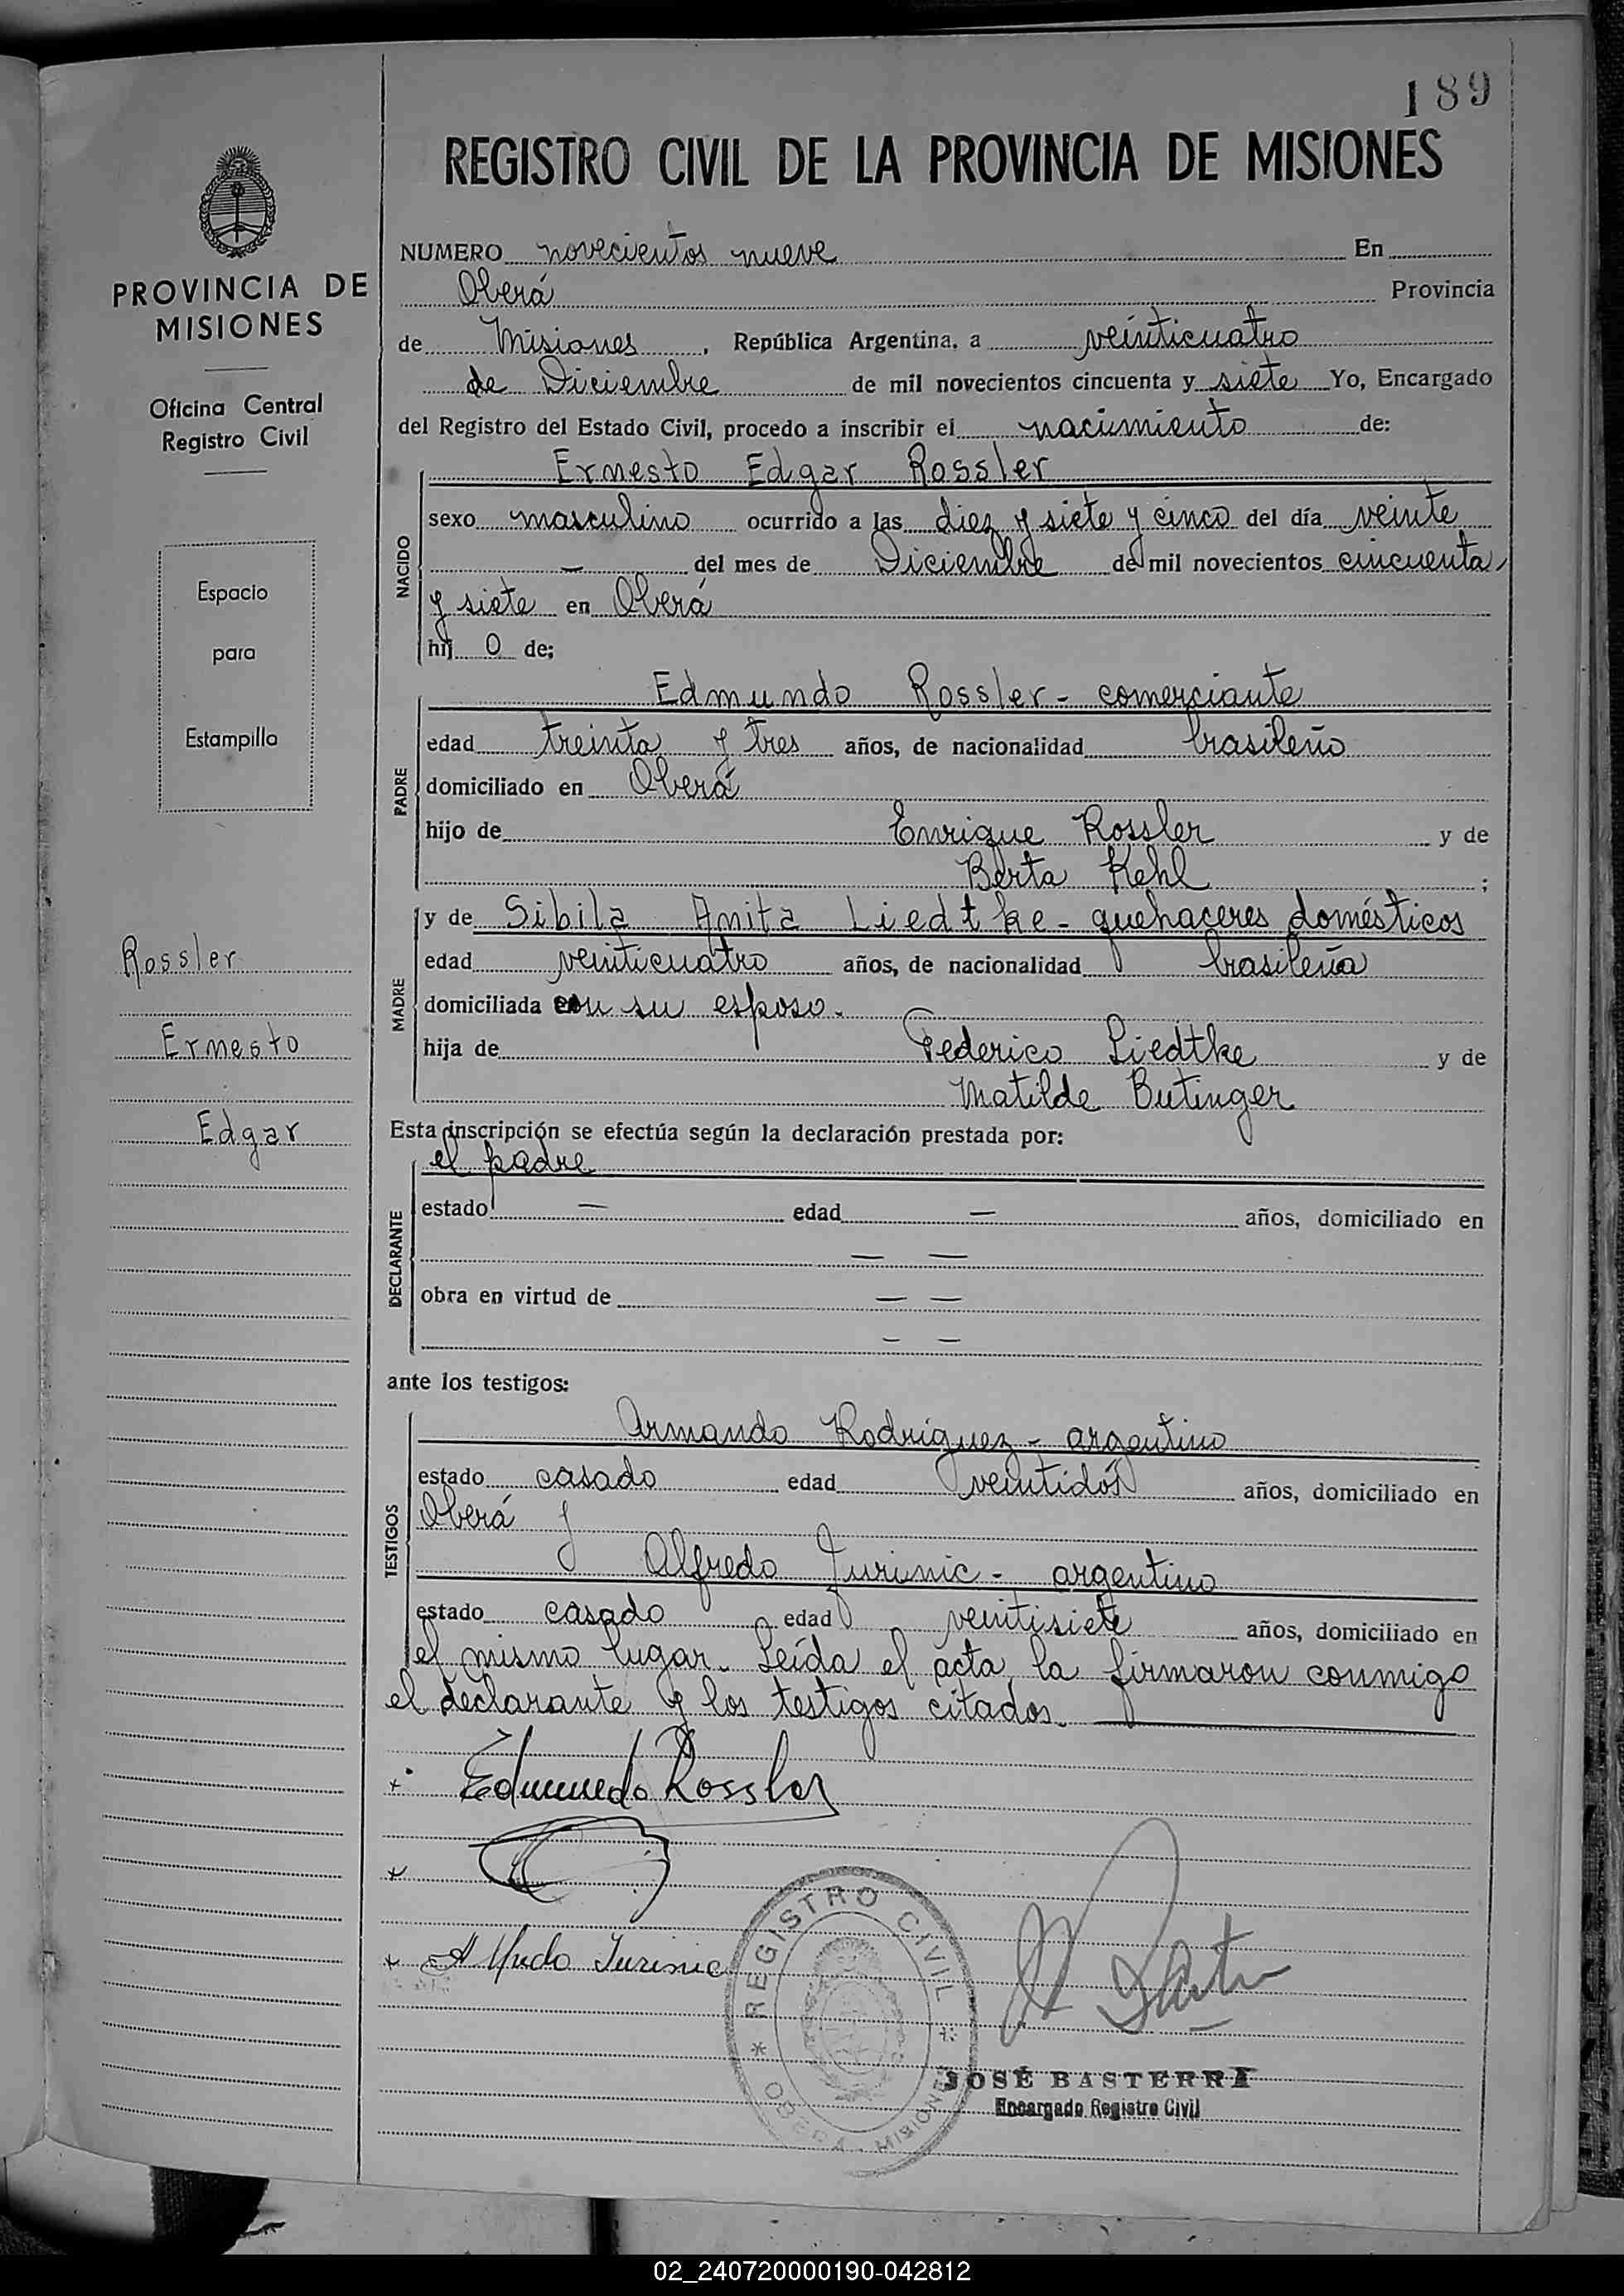 189
REGISTRO CIVIL DE LA PROVINCIA DE MISIONES
PROVINCIA DE
MISIONES
Oficina Central
Registro Civil
Espacio
para
Estampilla
Rossler
Ernesto
Edgar
NUMERO novecientos nueve En
Oberá Provincia
de Misiones, República Argentina, a veinticuatro
de Diciembre de mil novecientos cincuenta y siete Yo, Encargado
del Registro del Estado Civil, procedo a inscribir el nacimiento de:
Ernesto Edgar Rossler
NACIDO
sexo masculino ocurrido a las diez y siete y cinco del día veinte
— del mes de Diciembre de mil novecientos cincuenta
y siete en Oberá
hij o de;
Edmundo Rossler - comerciante
PADRE
edad treinta y tres años, de nacionalidad brasileño
domiciliado en Oberá
hijo de Enrique Rossler y de
Berta Kehl ;
MADRE
y de Sibila Anita Liedtke - quehaceres domésticos
edad veinticuatro años, de nacionalidad brasileña
domiciliada con su esposo.
hija de Federico Liedtke y de
Matilde Butinger
Esta inscripción se efectúa según la declaración prestada por:
el padre
DECLARANTE
estado — edad — años, domiciliado en
— —
obra en virtud de — —
— —
ante los testigos:
Armando Rodríguez - argentino
TESTIGOS
estado casado edad veintidós años, domiciliado en
Oberá y
Alfredo Jurinic - argentino
estado casado edad veintisiete años, domiciliado en
el mismo lugar. Leída el acta la firmaron conmigo
el declarante y los testigos citados.
Edmundo Rossler
Alfredo Jurinic
REGISTRO CIVIL
OBERÁ - MISIONES
JOSÉ BASTERRA
Encargado Registro Civil
02_240720000190-042812